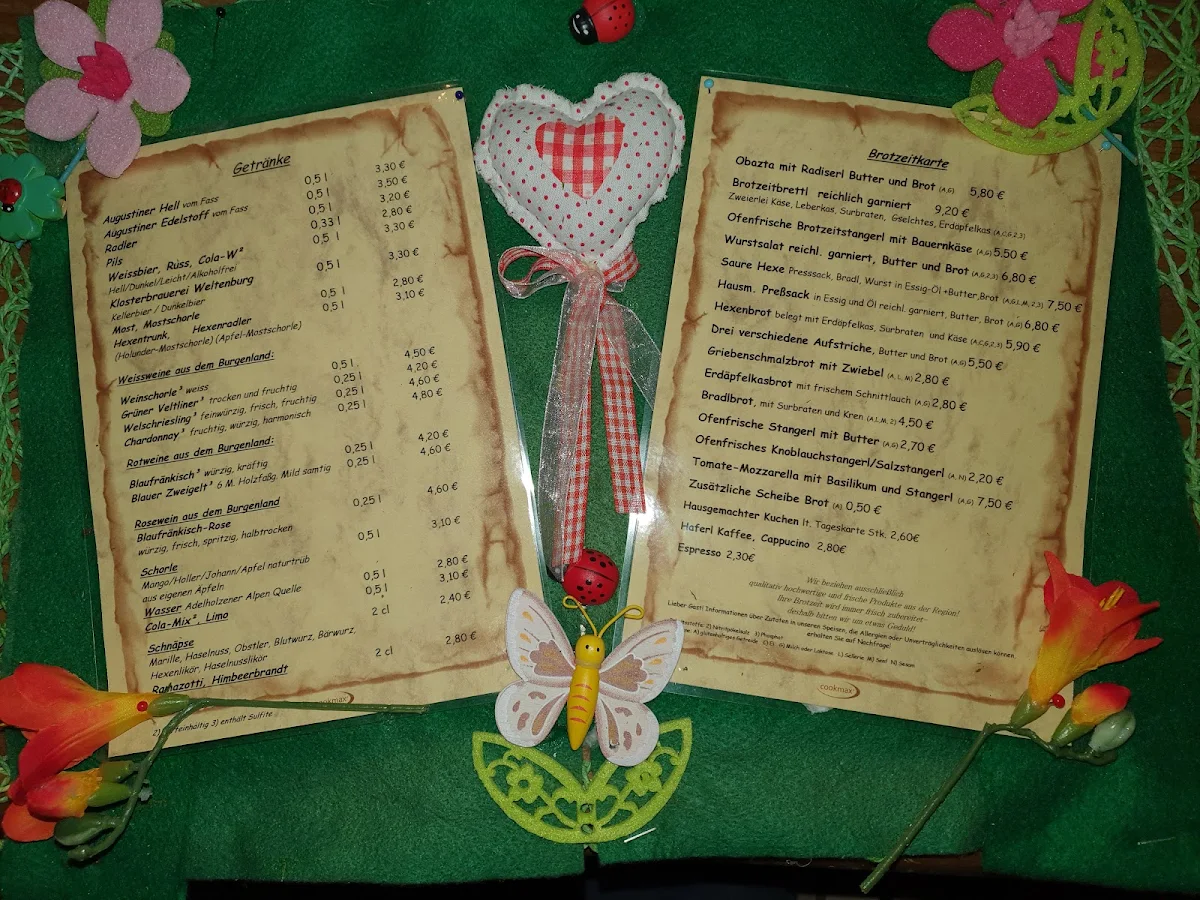 Getränke
Augustiner Hell vom Fass 0,5 l 3,30 €
Augustiner Edelstoff vom Fass 0,5 l 3,50 €
Radler 0,5 l 3,20 €
Pils 0,33 l 2,80 €
Weissbier, Rüss, Cola-W² 0,5 l 3,30 €
Hell/Dunkel/Leicht/Alkoholfrei
Klosterbrauerei Weltenburg 0,5 l 3,30 €
Kellerbier / Dunkelbier
Most, Mostschorle 0,5 l 2,80 €
Hexentrunk, Hexenradler 0,5 l 3,10 €
(Holunder-Mostschorle) (Apfel-Mostschorle)
Weissweine aus dem Burgenland:
Weinschorle³ weiss 0,5 l. 4,50 €
Grüner Veltliner³ trocken und fruchtig 0,25 l 4,20 €
Welschriesling³ feinwürzig, frisch, fruchtig 0,25 l 4,60 €
Chardonnay³ fruchtig, würzig, harmonisch 0,25 l 4,80 €
Rotweine aus dem Burgenland:
Blaufränkisch³ würzig, kräftig 0,25 l 4,20 €
Blauer Zweigelt³ 6 M. Holzfaßg. Mild samtig 0,25 l 4,60 €
Rosewein aus dem Burgenland
Blaufränkisch-Rose 0,25 l 4,60 €
würzig, frisch, spritzig, halbtrocken
Schorle 0,5 l 3,10 €
Mango/Holler/Johann/Apfel naturtrüb
aus eigenen Äpfeln
Wasser Adelholzener Alpen Quelle 0,5 l 2,80 €
Cola-Mix², Limo 0,5 l 3,10 €
Schnäpse 2 cl 2,40 €
Marille, Haselnuss, Obstler, Blutwurz, Bärwurz,
Hexenlikör, Haselnusslikör
Ramazotti, Himbeerbrandt 2 cl 2,80 €
cookmax
3) enthält Sulfite
Brotzeitkarte
Obazta mit Radiserl Butter und Brot (A,G) 5,80 €
Brotzeitbrettl reichlich garniert 9,20 €
Zweierlei Käse, Leberkas, Surbraten, Gselchtes, Erdäpfelkas (A,C,G,2,3)
Ofenfrische Brotzeitstangerl mit Bauernkäse (A,G) 5.50 €
Wurstsalat reichl. garniert, Butter und Brot (A,G,2,3) 6,80 €
Saure Hexe Presssack, Bradl, Wurst in Essig-Öl +Butter,Brot (A,G,L,M,2,3) 7,50 €
Hausm. Preßsack in Essig und Öl reichl. garniert, Butter, Brot (A,G) 6,80 €
Hexenbrot belegt mit Erdäpfelkas, Surbraten und Käse (A,C,G,2,3) 5,90 €
Drei verschiedene Aufstriche, Butter und Brot (A,G) 5,50 €
Griebenschmalzbrot mit Zwiebel (A, L, M) 2,80 €
Erdäpfelkasbrot mit frischem Schnittlauch (A,G) 2,80 €
Bradlbrot, mit Surbraten und Kren (A,L,M, 2) 4,50 €
Ofenfrische Stangerl mit Butter (A,G) 2,70 €
Ofenfrisches Knoblauchstangerl/Salzstangerl (A, N) 2,20 €
Tomate-Mozzarella mit Basilikum und Stangerl (A,G) 7,50 €
Zusätzliche Scheibe Brot (A) 0,50 €
Hausgemachter Kuchen lt. Tageskarte Stk. 2,60€
Haferl Kaffee, Cappucino 2,80€
Espresso 2,30€
Wir beziehen ausschließlich
qualitativ hochwertige und frische Produkte aus der Region!
Ihre Brotzeit wird immer frisch zubereitet-
deshalb bitten wir um etwas Geduld!
Lieber Gast! Informationen über Zutaten in unseren Speisen, die Allergien oder Unverträglichkeiten auslösen können
erhalten Sie auf Nachfrage!
2) Nitritpökelsalz 3) Phosphat
A) glutenhaltiges Getreide G) Milch oder Laktose L) Sellerie M) Senf N) Sesam
cookmax